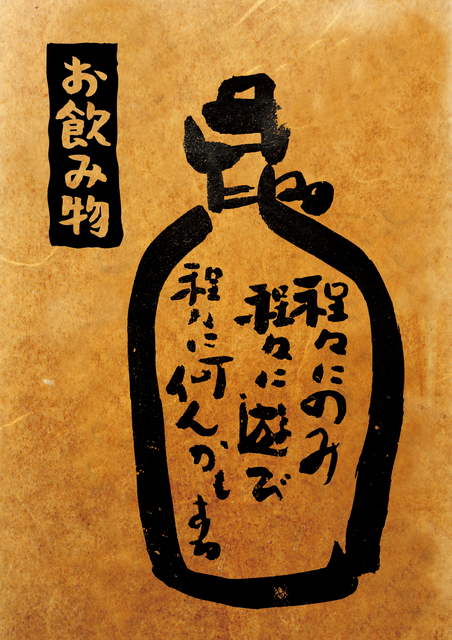 お飲み物
程々にのみ
程々に遊び
程々に何んかしよう